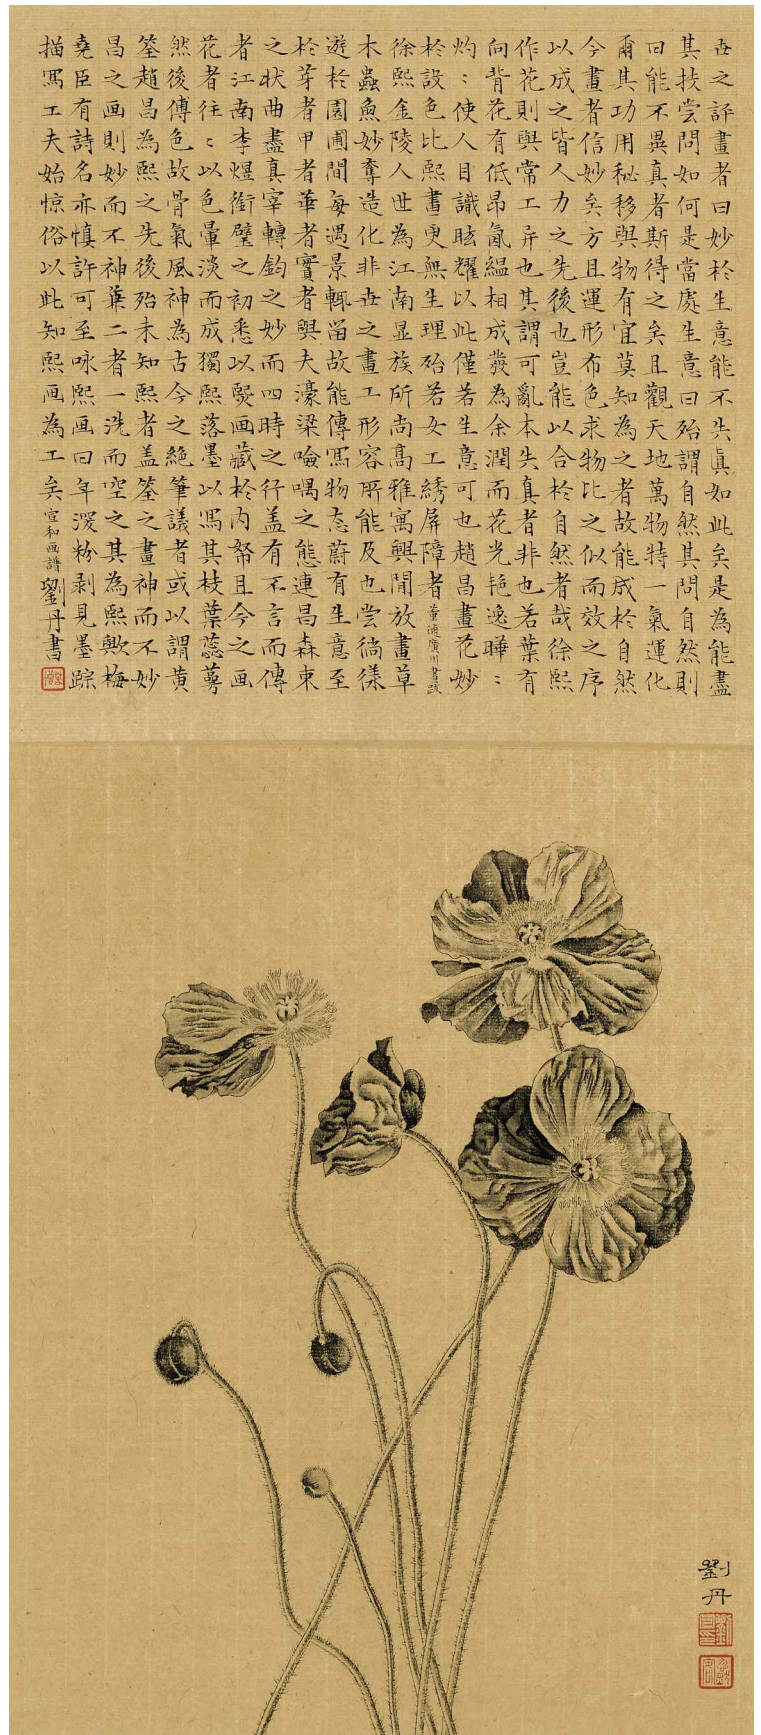 世之評畫者曰妙於生意能不失真如此矣是為能盡
其技嘗問如何是當處生意曰殆謂自然其問自然則
曰能不異真者斯得之矣且觀天地萬物特一氣運化
爾其功用秘移與物有宜莫知為之者故能成於自然
今畫者信妙矣方且運形布色求物比之似而效之序
以成之皆人力之先後也豈能以合於自然者哉徐熙
作花則與常工异也其謂可亂本失真者非也若葉有
向背花有低昂氤氲相成發為余潤而花光艳逸曄〻
灼〻使人目識眩耀以此僅若生意可也趙昌畫花妙
於設色比熙畫更無生理殆若女工綉屏障者董逌廣川書跋
徐熙金陵人世為江南显族所尚高雅寓興閒放畫草
木蟲魚妙奪造化非世之畫工形容所能及也嘗徜徉
遊於園圃間每遇景輒留故能傳寫物态蔚有生意至
於芽者甲者華者實者與夫濠梁噞喁之態連昌森束
之状曲盡真宰轉鈞之妙而四時之行盖有不言而傳
者江南李煜銜璧之初悉以熙画藏於内帑且今之画
花者往〻以色暈淡而成獨熙落墨以寫其枝葉蕊萼
然後傅色故骨氣風神為古今之絶筆議者或以謂黄
筌趙昌為熙之先後殆未知熙者盖筌之畫神而不妙
昌之画則妙而不神兼二者一洗而空之其為熙歟梅
堯臣有詩名亦慎許可至咏熙画曰年深粉剥見墨踪
描寫工夫始惊俗以此知熙画為工矣宣和画譜劉丹書
劉丹